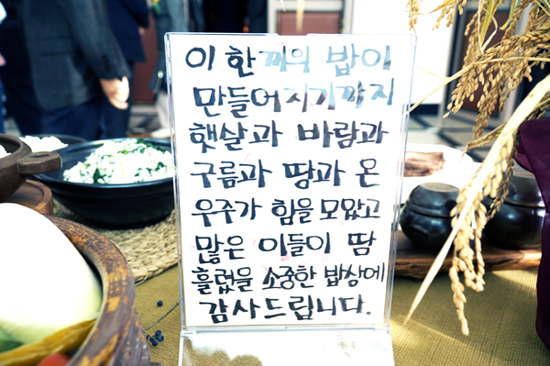 이 한끼의 밥이
만들어지기까지
햇살과 바람과
구름과 땅과 온
우주가 힘을 모았고
많은 이들이 땀
흘렸을 소중한 밥상에
감사드립니다.